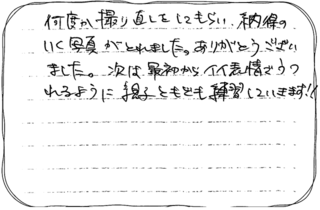 何度か撮り直しをしてもらい、納得の
いく写真がとれました。ありがとうござい
ました。次は最初からイイ表情でうつ
れるように息子ともども練習していきます!!